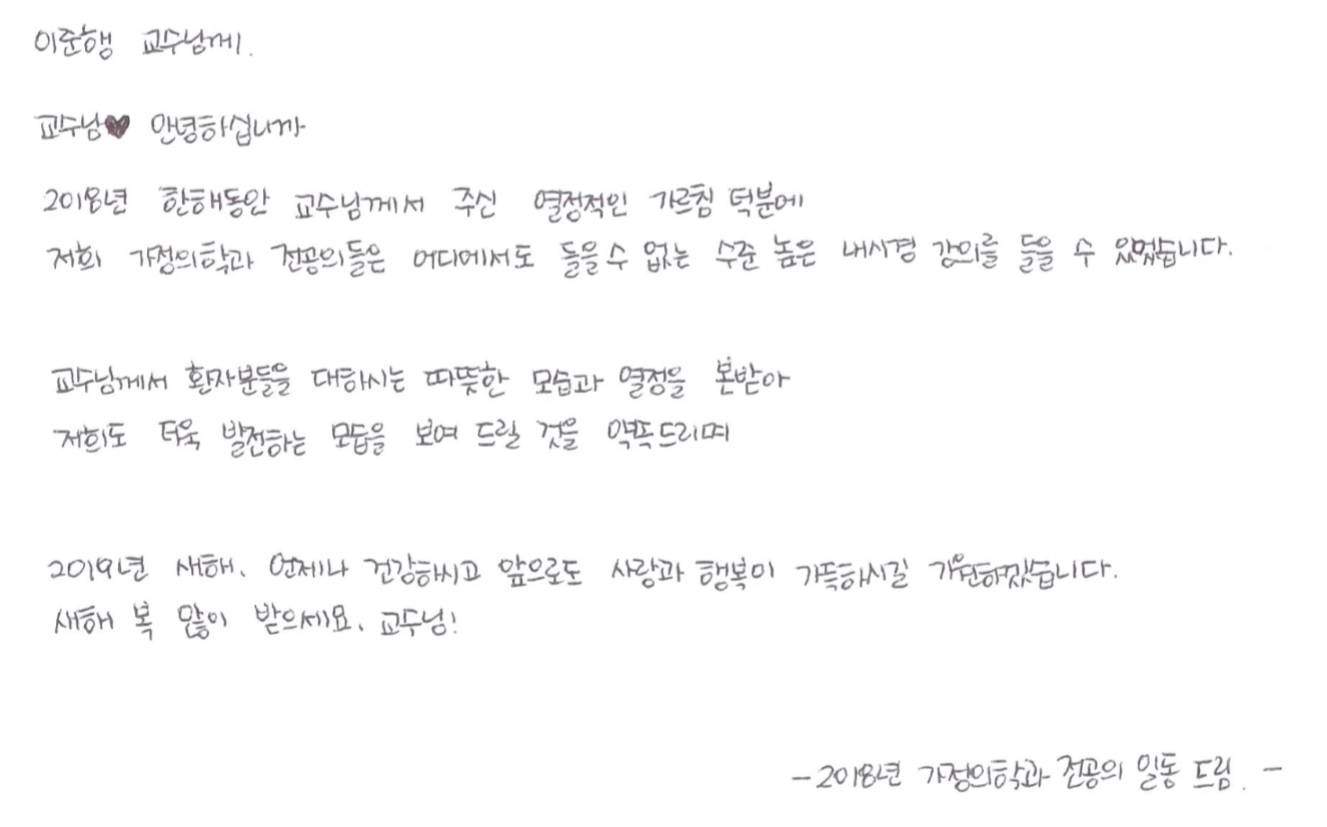 이준행 교수님께.
교수님♥ 안녕하십니까
2018년 한해동안 교수님께서 주신 열정적인 가르침 덕분에
저희 가정의학과 전공의들은 어디에서도 들을수 없는 수준 높은 내시경 강의를 들을 수 있었습니다.
교수님께서 환자분들을 대하시는 따뜻한 모습과 열정을 본받아
저희도 더욱 발전하는 모습을 보여 드릴 것을 약속드리며
2019년 새해, 언제나 건강하시고 앞으로도 사랑과 행복이 가득하시길 기원하겠습니다.
새해 복 많이 받으세요, 교수님!
-2018년 가정의학과 전공의 일동 드림. -